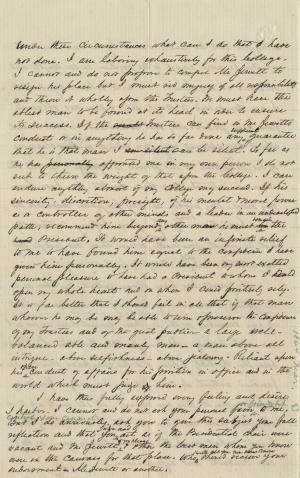 Under these circumstances what can I do that I have
not done. I am laboring exhaustively for this College.
I cannot and do not propose to compel Mr Jewett to
resign his place but I must rid myself of all responsibility
and throw it wholly upon the Trustees. We must have the
ablest man to be found at its head in order to ensure
its success. If the Trustees can find in Mr Jewett's
conduct or in anything he has so far done any guarantee
that he is that man I can be silent. So far as
he has affronted me in my own person I do not
ask to throw the weight of that upon the College. I can
endure anything almost if my College may succeed. If his
sincerity, discretion, foresight, if his
as a controller of other minds and a leader in
paths, recommend him beyond other men he must be the
President. It would have been an infinite relief
to me to have found him equal to the confidence I have
given him personally. It would have been my most exalted
personal pleasure to have had a President to whom I could
open my whole heart and on whom I could positively rely.
It is far better that I should fail in all that if that man
whom he may be may be able to win
of my Trustees and of the great public a large well-
balanced able and manly man - a man above all
intrigue - above selfishness - above jealousy. Reliant upon
his conduct of affairs for his position in office and in the
world which must judge him.
I have thus fully exposed every feeling and desire
I harbor. I cannot and do not ask your personal favor to me.
But I do anxiously ask you to give this subject your full
reflection and that you act as if the Presidential chair were
vacant and Mr Jewett or other the best man whom you knew
were on the canvass for that place. Who should receive your
endorsement - Mr Jewett or another.